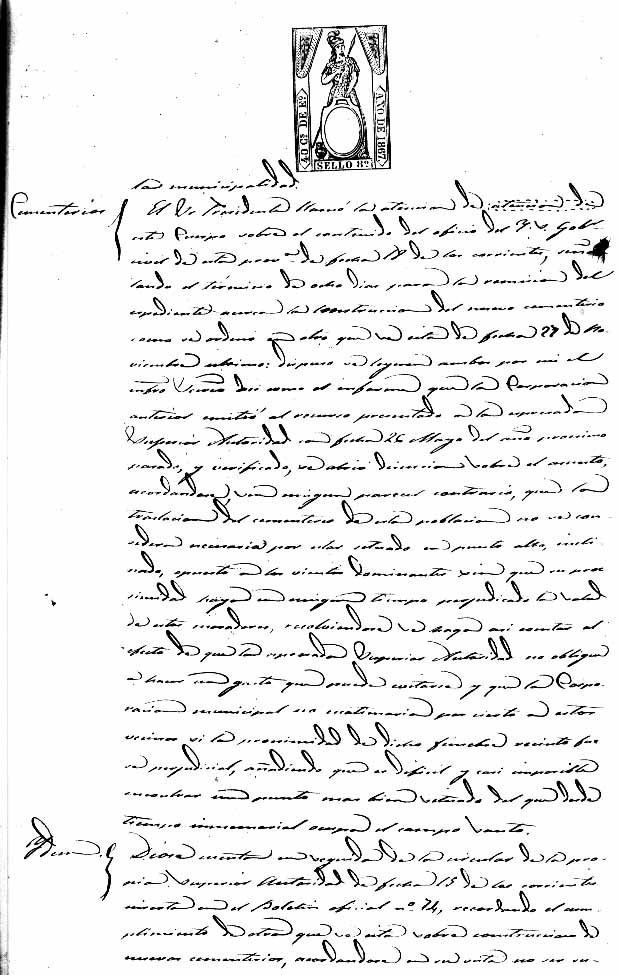 40 Cs DE Eo
AÑO DE 1867
SELLO 8º
la municipalidad.
Cementerios
El Sr Presidente llamó la atencion de
este Cuerpo sobre el contenido del oficio del Gob
civil de esta prova de fecha 18 de los corrientes, seña
lando el término de ocho dias para la remision del
expediente acerca la construccion del nuevo cementerio
como se ordenó en otro que se cita de fecha 27 de No
viembre ultimo: dispuso se leyeran ambos por mi el
infro Secreo asi como el informe que la Corporacion
anterior emitió al recurso presentado a la espresada
Superior Autoridad con fecha 26 Mayo del año proximo
pasado, y verificado, se abrió discusion sobre el asunto,
acordandose sin ningun parecer contrario, que la
traslacion del cementerio de esta poblacion no se con
sidera necesaria por estar situado en punto alto, incli
nado, opuesto a los vientos dominantes sin que su prox
cimidad haya en ningun tiempo perjudicado la salud
de estos moradores, resolviendose se haga asi constar al
efecto de que la espresada Superior Autoridad no obligue
a hacer un gasto que puede evitarse y que la Corpo
racion municipal no costearia por cierto a estos
vecinos si la proximidad de dicho fúnebre recinto fue
se perjudicial, añadiendo que es dificil y casi imposible
encontrar un punto mas bien situado del que desde
tiempo inmemorial ocupa el campo santo.
Idem
Diose cuenta en seguida de la circular de la pro
pia Superior Autoridad de fecha 15 de los corrientes
inserta en el Boletin oficial nº 74, recordando el cum
plimiento de otra que se cita sobre construccion de
nuevos cementerios, acordandose en su vista no ser su-